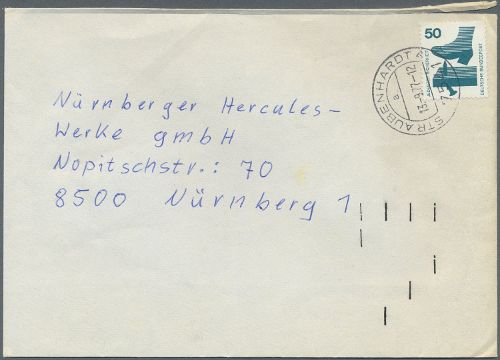 50
DEUTSCHE BUNDESPOST
STRAUBENHARDT
a
Nürnberger Hercules-
Werke gmbH
Nopitschstr.: 70
8500 Nürnberg 1